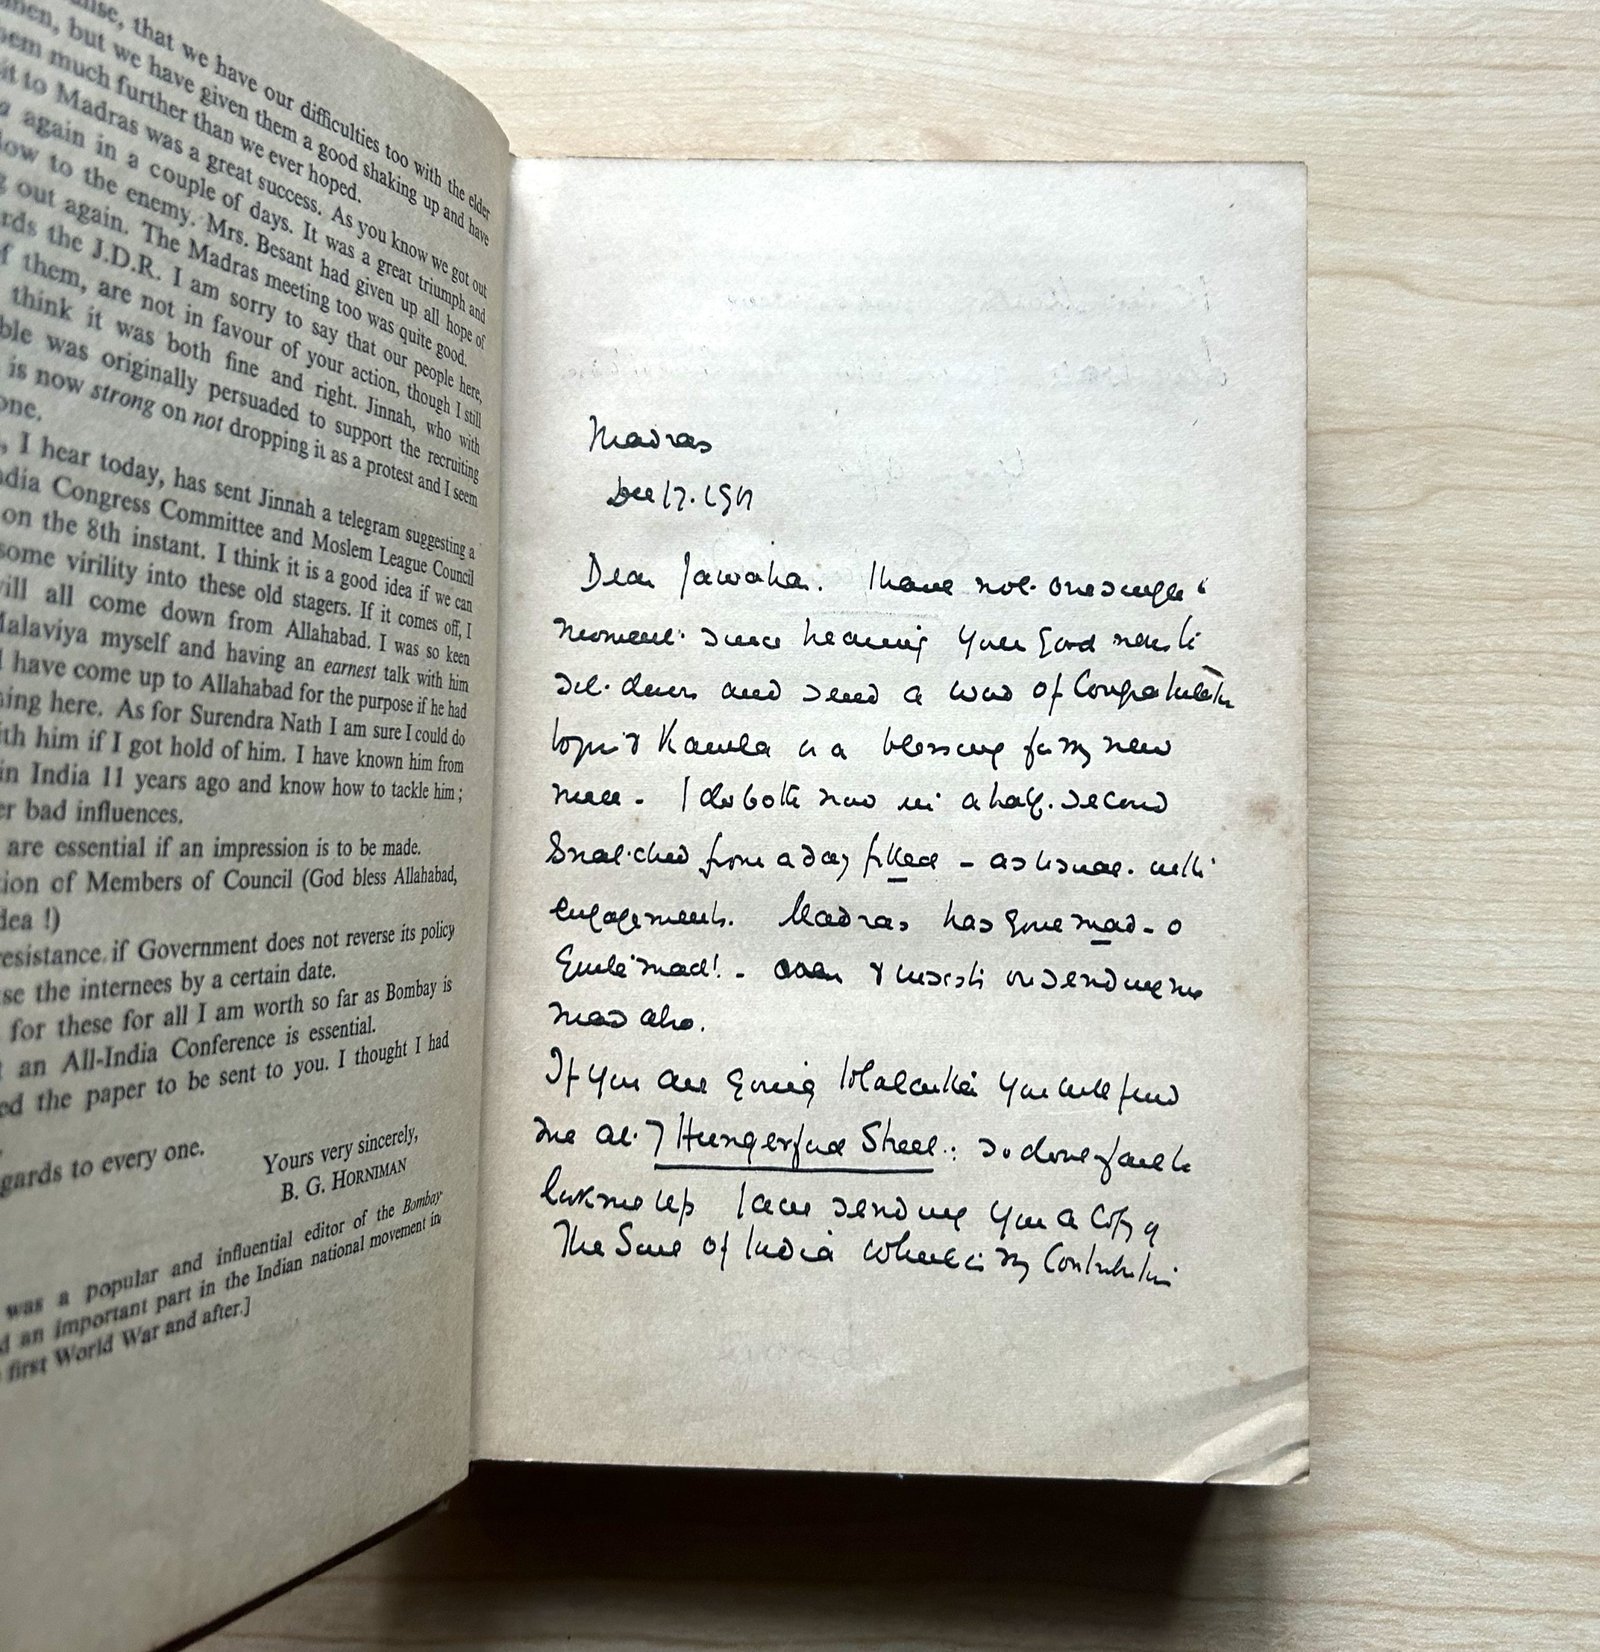 alise, that we have our difficulties too with the elder
men, but we have given them a good shaking up and have
em much further than we ever hoped.
it to Madras was a great success. As you know we got out
again in a couple of days. It was a great triumph and
low to the enemy. Mrs. Besant had given up all hope of
g out again. The Madras meeting too was quite good.
rds the J.D.R. I am sorry to say that our people here,
f them, are not in favour of your action, though I still
think it was both fine and right. Jinnah, who with
ble was originally persuaded to support the recruiting
is now strong on not dropping it as a protest and I seem
one.
, I hear today, has sent Jinnah a telegram suggesting a
ndia Congress Committee and Moslem League Council
on the 8th instant. I think it is a good idea if we can
some virility into these old stagers. If it comes off, I
will all come down from Allahabad. I was so keen
Malaviya myself and having an earnest talk with him
I have come up to Allahabad for the purpose if he had
hing here. As for Surendra Nath I am sure I could do
ith him if I got hold of him. I have known him from
in India 11 years ago and know how to tackle him;
er bad influences.
are essential if an impression is to be made.
tion of Members of Council (God bless Allahabad,
dea !)
resistance if Government does not reverse its policy
se the internees by a certain date.
for these for all I am worth so far as Bombay is
t an All-India Conference is essential.
ed the paper to be sent to you. I thought I had
egards to every one.
Yours very sincerely,
B. G. HORNIMAN
was a popular and influential editor of the Bombay
d an important part in the Indian national movement in
first World War and after.]
Madras
Dec 17. 1917
Dear Jawahar. I have not one single
moment since hearing your good news to
sit down and send a word of Congratulation
to you & Kamala and a blessing for my new
niece - I do both now in a half-second
snatched from a day filled - as usual - with
engagements. Madras has gone mad - O
Quite mad! - & insists on sending me
mad also.
If you are going to Calcutta you will find
me at 7 Hungerford Street: so don't fail to
look me up I am sending you a copy of
The Soul of India which is my Contribution